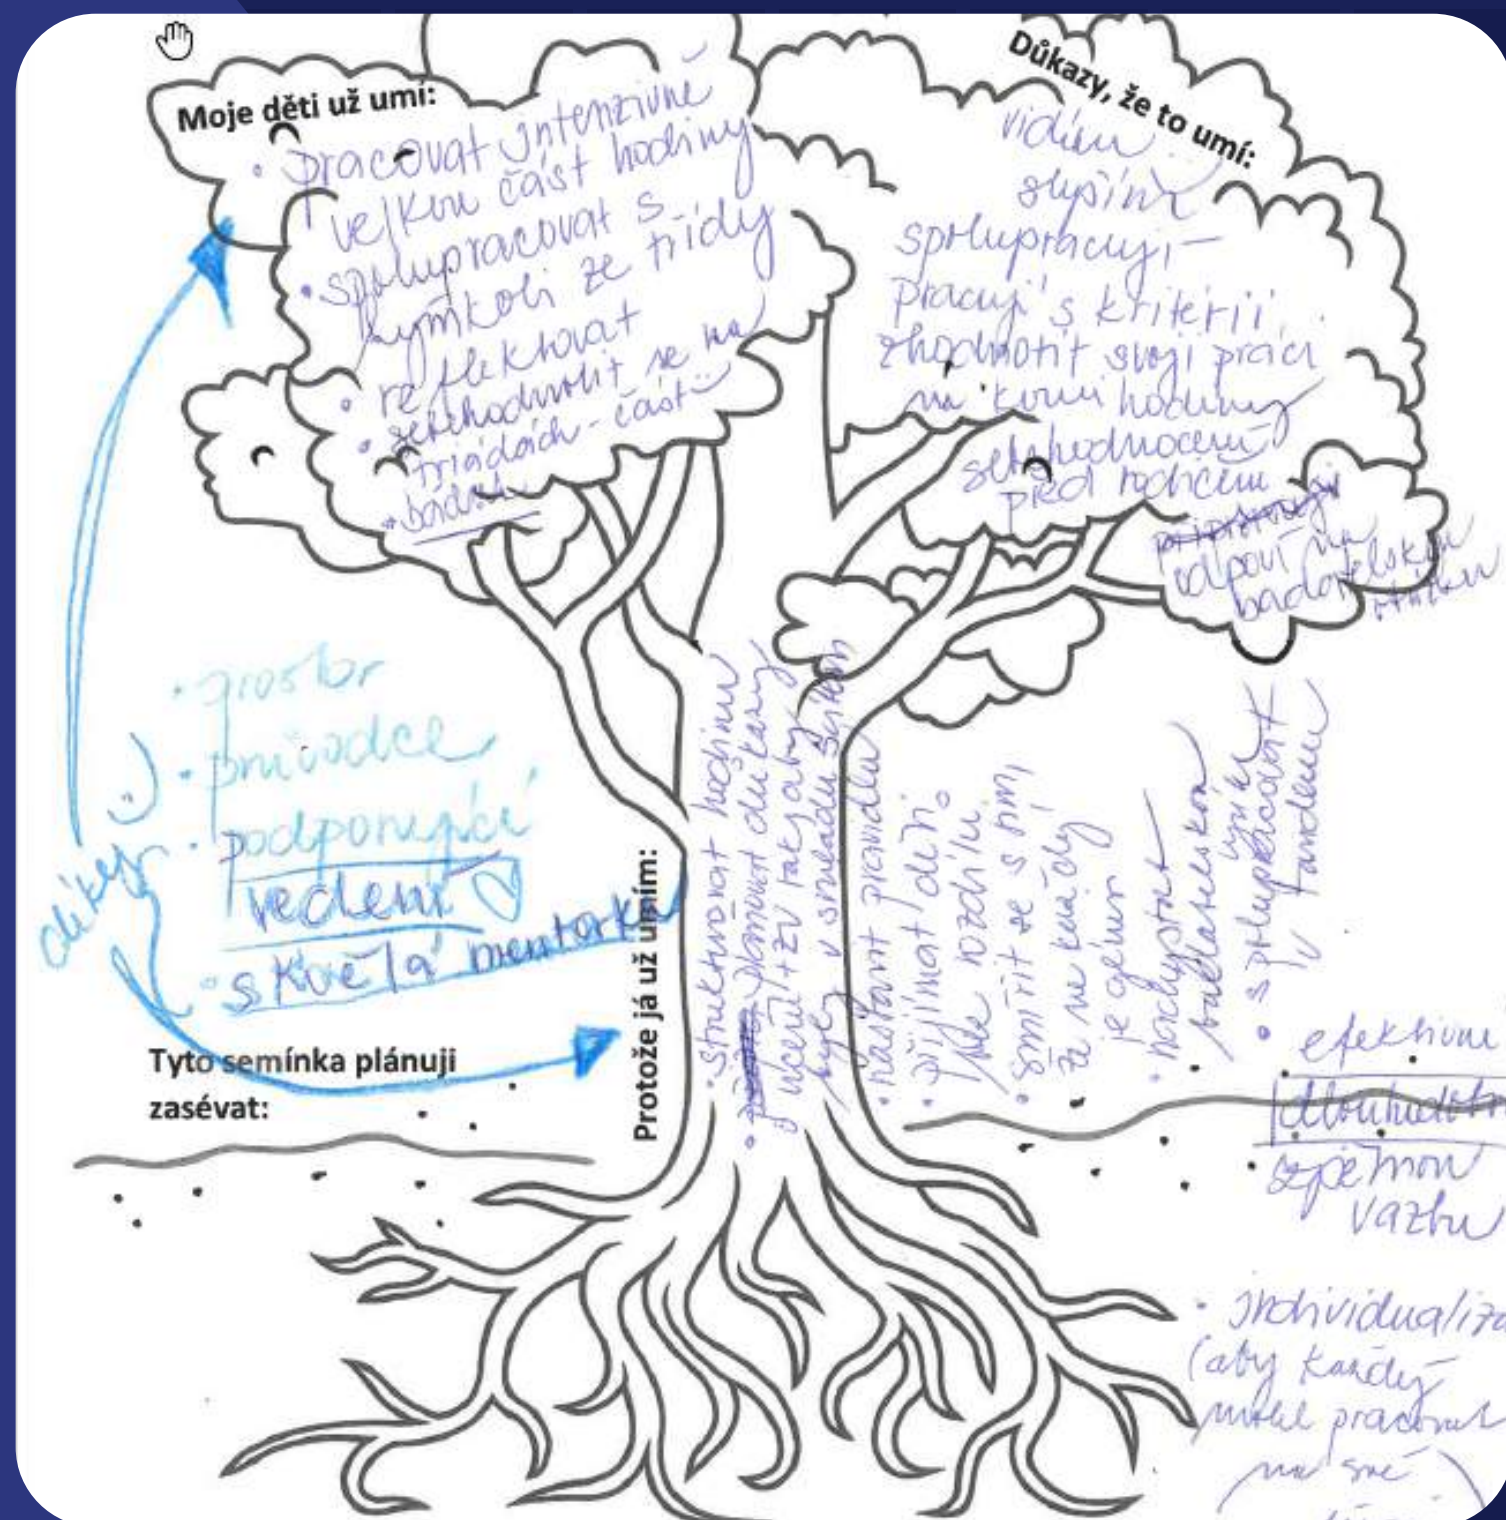 Moje děti už umí:
• pracovat intenzivně
velkou část hodiny
• spolupracovat s
kýmkoli ze třídy
• reflektovat
• sebehodnotit se na
triádách - část
• bádat
Důkazy, že to umí:
vidím
slyším
spolupracují
pracují s kritérii
zhodnotit svoji práci
na konci hodiny
sebehodnocení
před rodičem
odpoví na
badatelskou
otázku
• prostor
• průvodce
• podporující
vedení
• skvělá mentorka
díky
Protože já už umím:
• strukturovat hodinu
• plánovat důkazy
o učení + ZV tak, aby
byly v souladu
• nastavit pravidla
• přijímat děti
• smířit se s tím,
že ne každý
je génius
• nachystat
badatelskou
výuku
• spolupracovat
v tandemu
Tyto semínka plánuji
zasévat:
efektivní
zpětnou
vazbu
• individualiza
(aby každý
mohl pracovat
na své